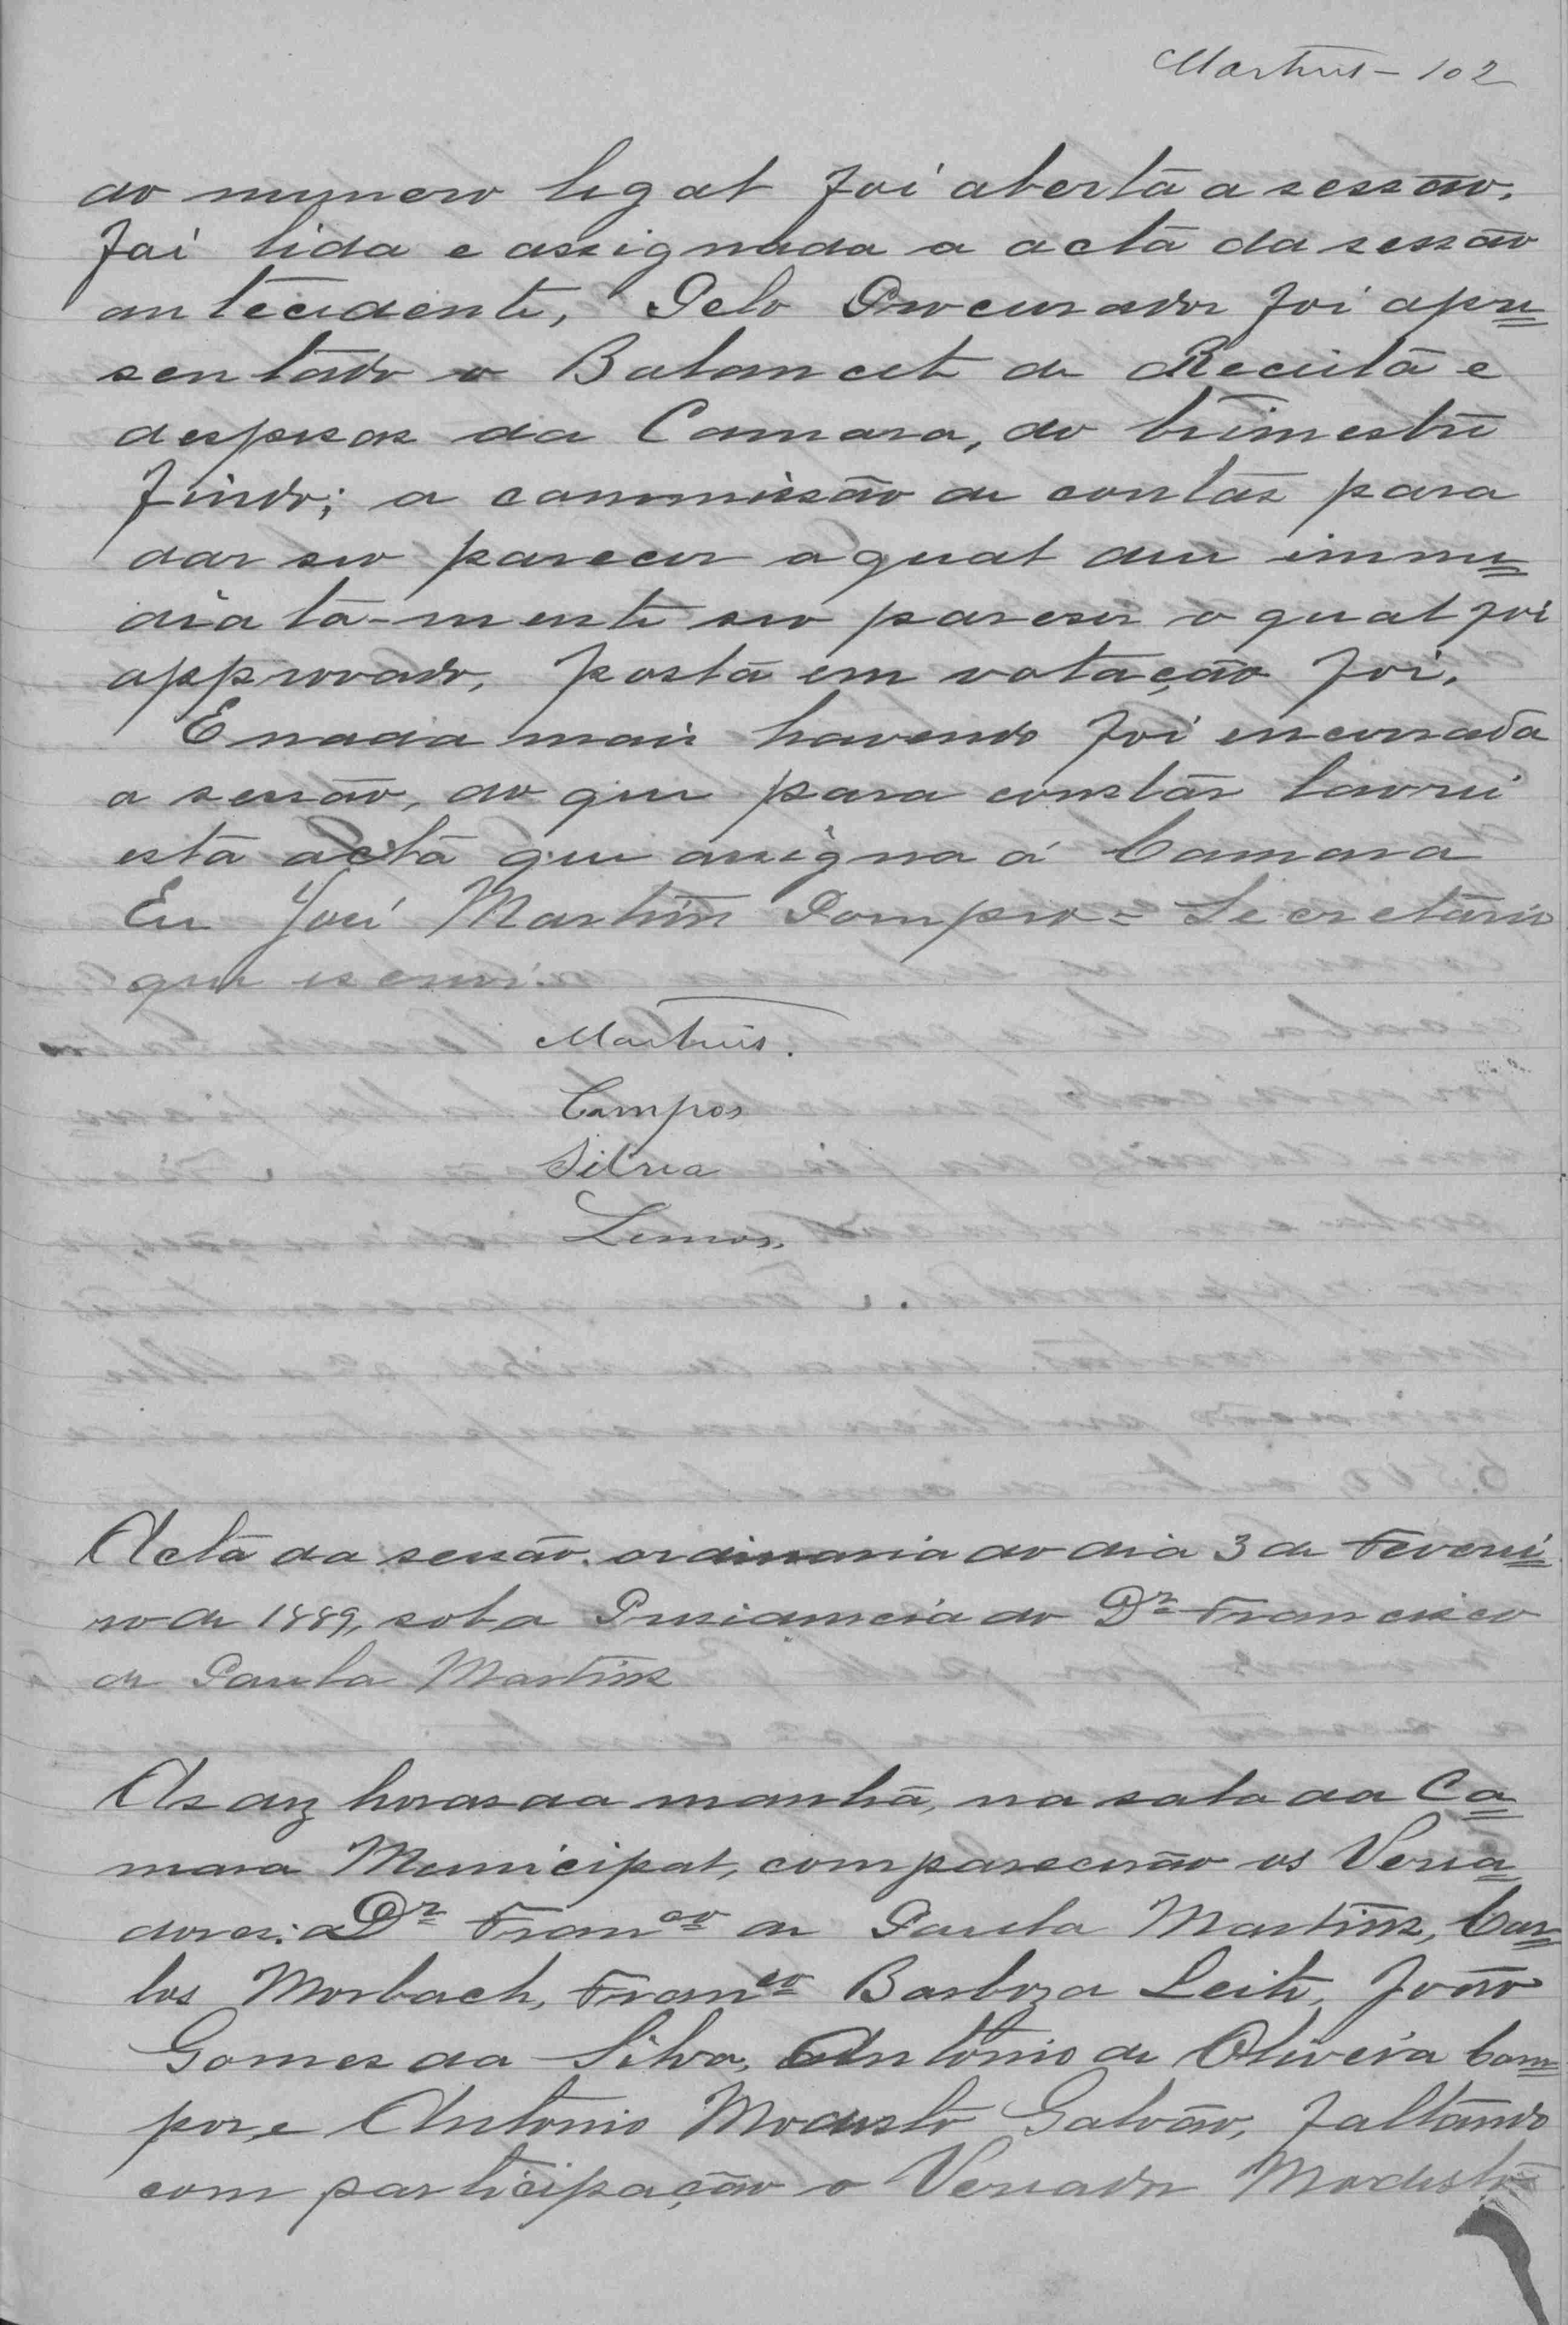 Martins - 102
do numero legal foi aberta a sessão.
Foi lida e assignada a acta da sessão
antecedente, Pelo Procurador foi apre=
sentado o Balancete de Receita e
despesas da Camara, do trimestre
findo; a commissão de contas para
dar seo parecer a qual deu imme=
diata-mente seo pareser o qual foi
approvado, posta em votação foi.
E nada mais havendo foi encerrada
a sessão, do que para constar lavrei
esta acta que assigna á Camara
Eu José Martins Pompeo = Secretário
que escrevi.
Martins.
Campos
Silva
Lemos.
Acta da sessão ordinaria do dia 3 de Feverei=
ro de 1889, sob a Presidencia do Dr Francisco
de Paula Martins
As dez horas da manhã, na sala da Ca=
mara Municipal, comparecerão os Verea=
dores: Dr Franco de Paula Martins, Car=
los Morbach, Franco Barboza Leite, João
Gomes da Silva, Antonio de Oliveira Cam=
pos, e Antonio Modesto Galvão, faltando
com participação o Vereador Modesto